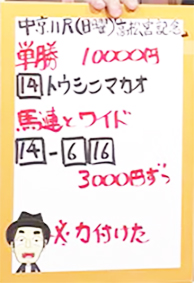 中京11R(日曜)高松宮記念
単勝 10000円
14 トウシンマカオ
馬連とワイド
14-6 16
3000円ずつ
付けた